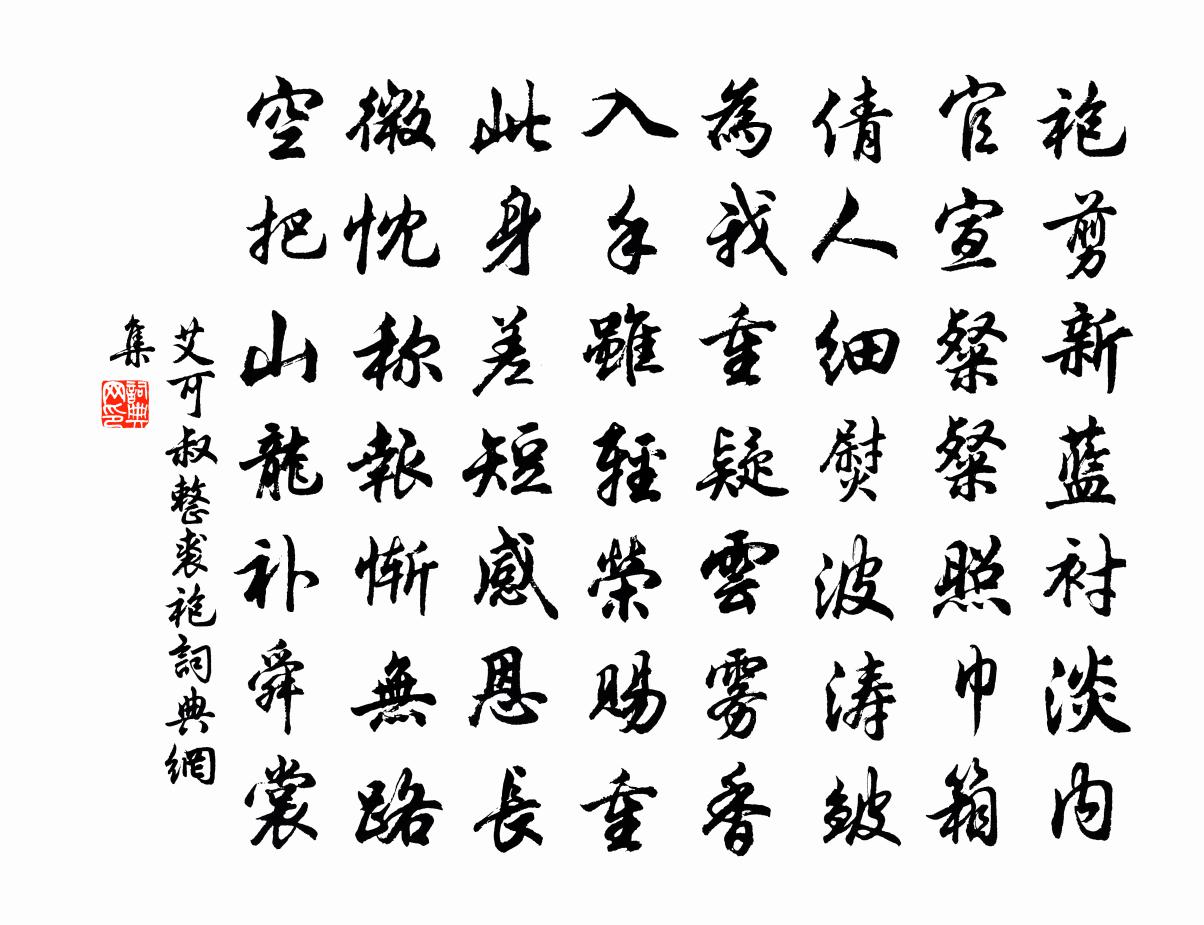 袍剪新藍衬淡内
官宣粲粲照巾箱
倩人细熨波涛皱
為我重疑雲雾香
入手雖輕榮賜重
此身差短感恩長
微忱称報惭無路
空把山龍补舜裳
艾可叔整裘袍詞典網
集
詞典
网印